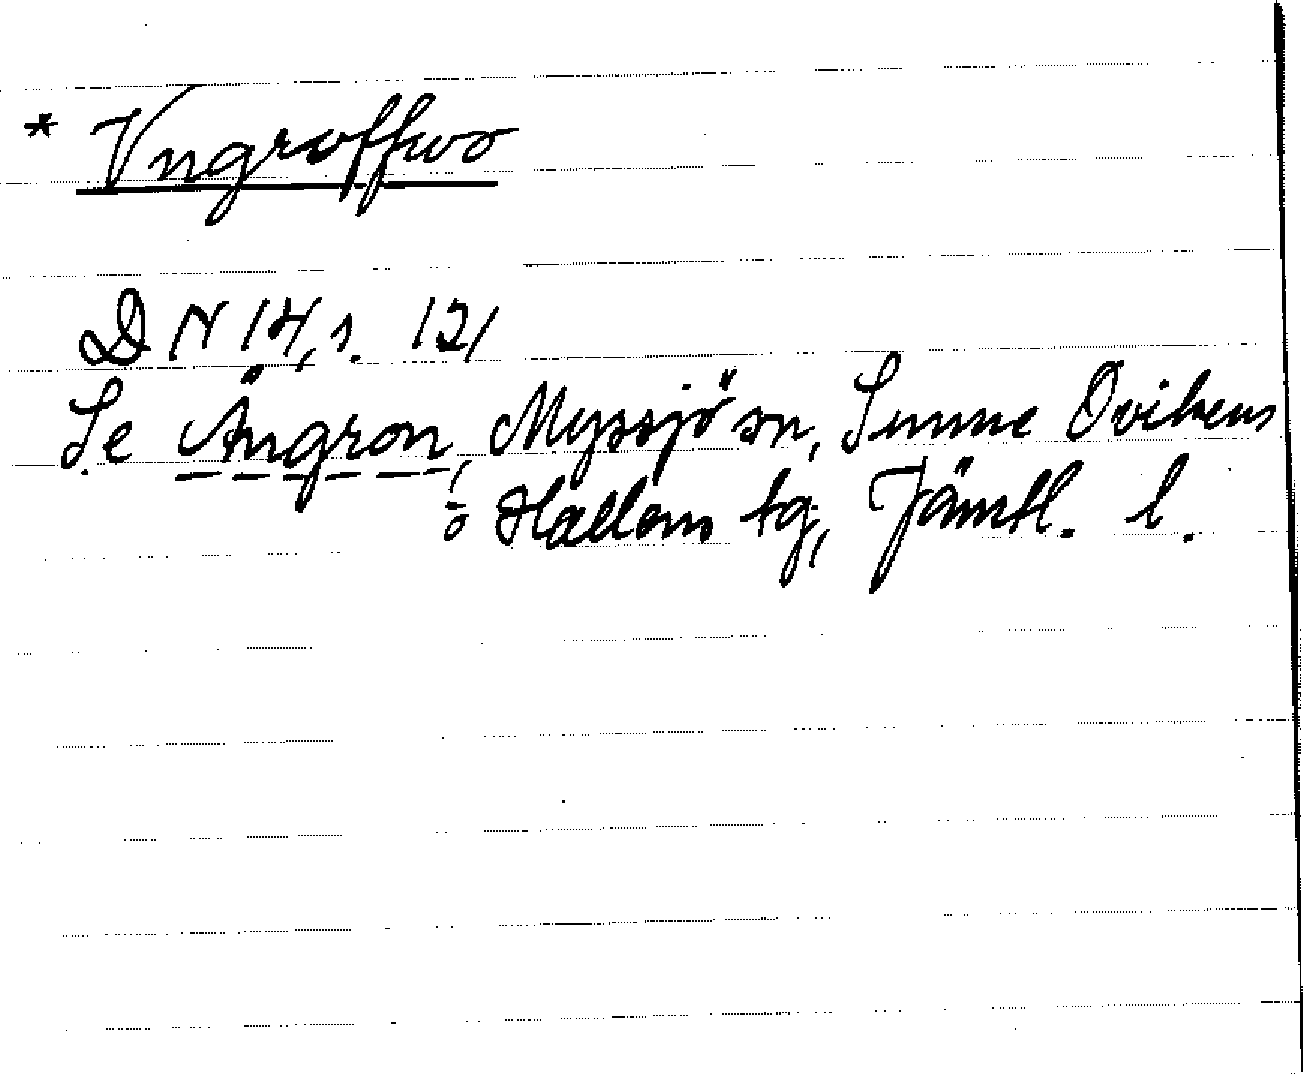 * Vngroffwo
DN 14, s. 121
Se Ängron, Myssjö sn, Sunne Ovikens
o Hallens tg, Jämtl. l.